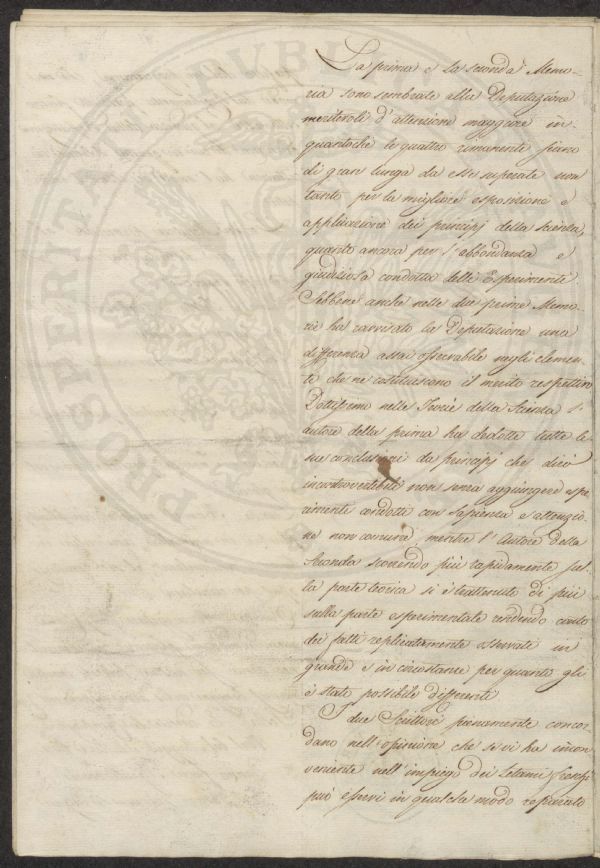 La prima e la seconda Memo-
ria sono sembrate alla Deputazione
meritevoli d'attenzione maggiore in-
quantoche le quattro rimanenti furono
di gran lunga da esse superate non
tanto per la migliore esposizione e
applicazione dei principj della scienza,
quanto ancora per l'abbondanza e
giudiziosa condotta delle Esperimente
Sebbene anche nelle due prime Memo-
rie ha ravvisato la Deputazione una
differenza assai osservabile negli elemen-
ti che ne costituiscono il merito respettivo
Dottissimo nelle Teorie della Scienza l'
autore della prima ha dedotte tutte le
sue conclusioni da principj che dirò
incontrovertibili non senza aggiungere espe-
rimenti condotti con sapienza e attenzio-
ne non comune, mentre l'Autore della
Seconda scorrendo più rapidamente sul-
la parte teorica si è trattenuto di più
sulla parte esperimentale rendendo conto
dei fatti replicatamente osservati in
grande e in circostanze per quanto gli
è stato possibile differenti
I due Scrittori pienamente concor-
dano nell'opinione che se vi ha incon
veniente nell'impiego dei Letami freschi
può esservi in qualche modo reparato
PROSPERITATI PUBLICAE